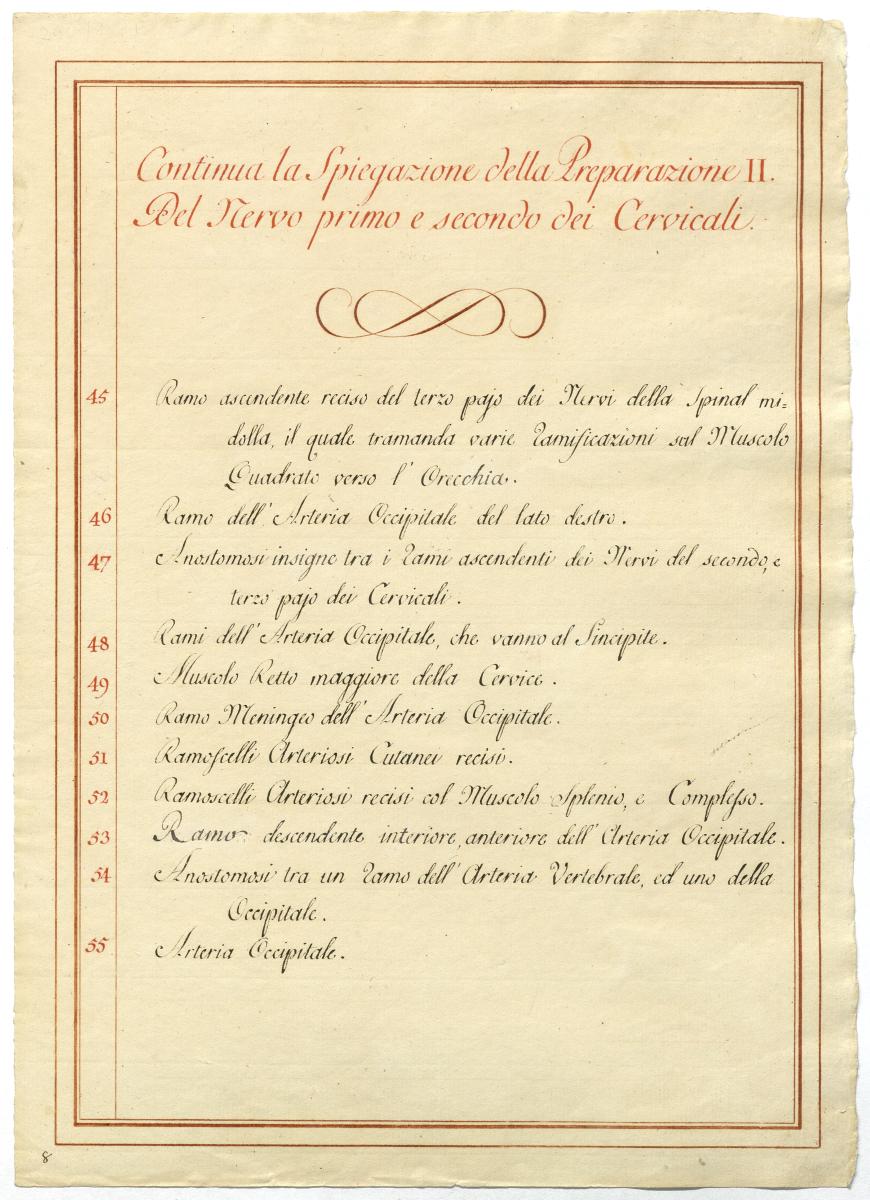 Continua la Spiegazione della Preparazione II.
Del Nervo primo e secondo dei Cervicali.
45 Ramo ascendente reciso del terzo pajo dei Nervi della Spinal mi=
dolla, il quale tramanda varie ramificazioni sul Muscolo
Quadrato verso l' Orecchia.
46 Ramo dell' Arteria Occipitale del lato destro.
47 Anostomosi insigne tra i rami ascendenti dei Nervi del secondo, e
terzo pajo dei Cervicali.
48 Rami dell' Arteria Occipitale, che vanno al Sincipite.
49 Muscolo Retto maggiore della Cervice.
50 Ramo Meningeo dell' Arteria Occipitale.
51 Ramoscelli Arteriosi Cutanei recisi.
52 Ramoscelli Arteriosi recisi col Muscolo Splenio, e Complesso.
53 Ramo descendente interiore, anteriore dell' Arteria Occipitale.
54 Anostomosi tra un ramo dell' Arteria Vertebrale, ed uno della
Occipitale.
55 Arteria Occipitale.
8